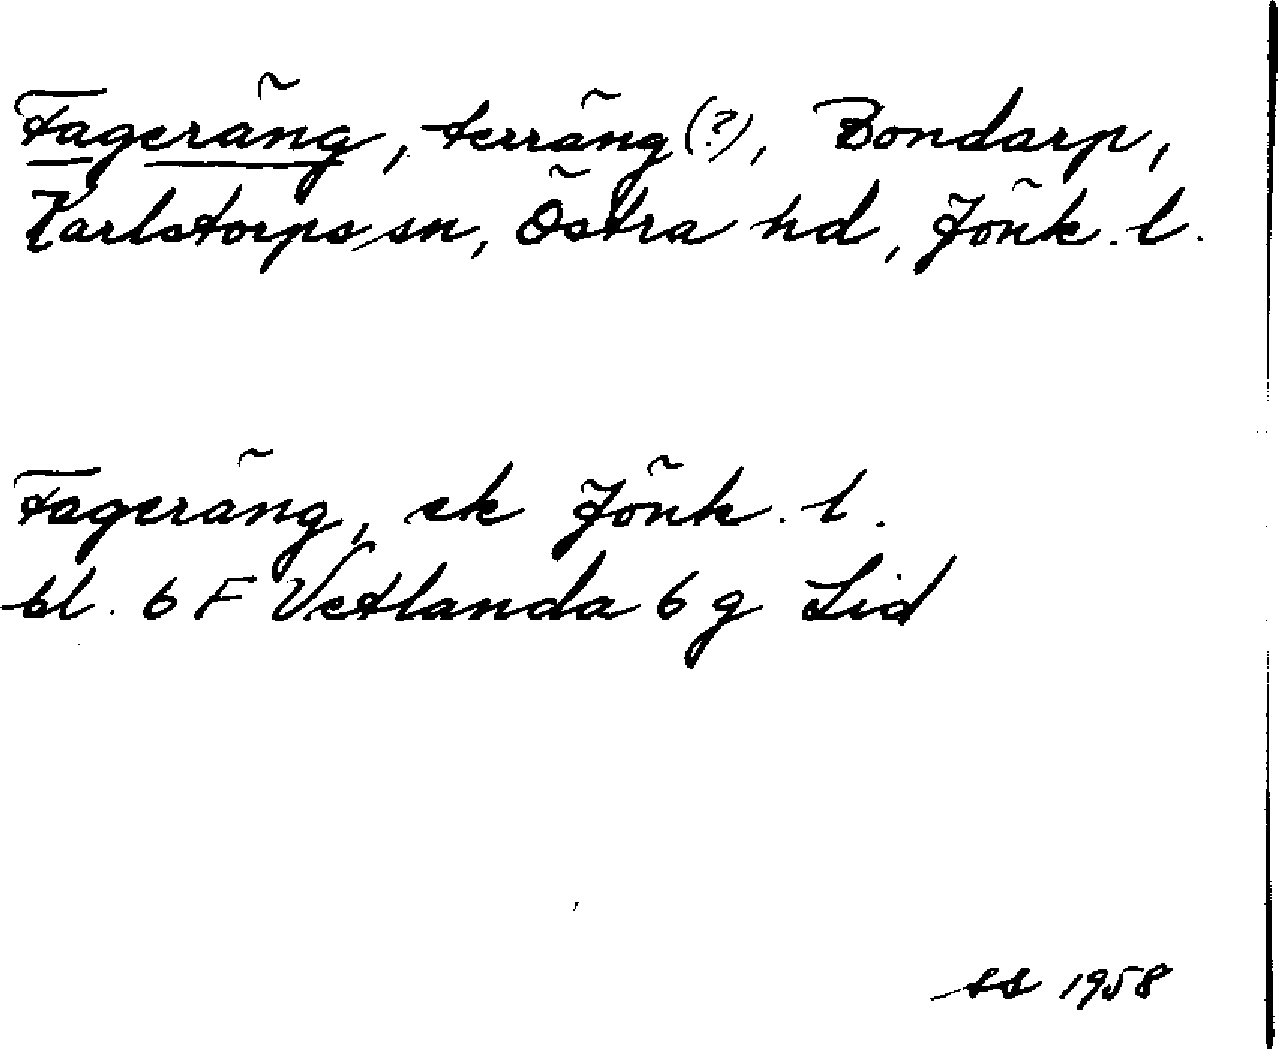 Fageräng, terräng (?), Bondarp,
Karlstorps sn, Östra hd, Jönk. l.
Fageräng, ek Jönk. l.
bl. 6 F Vetlanda 6 g Lid
SS 1958